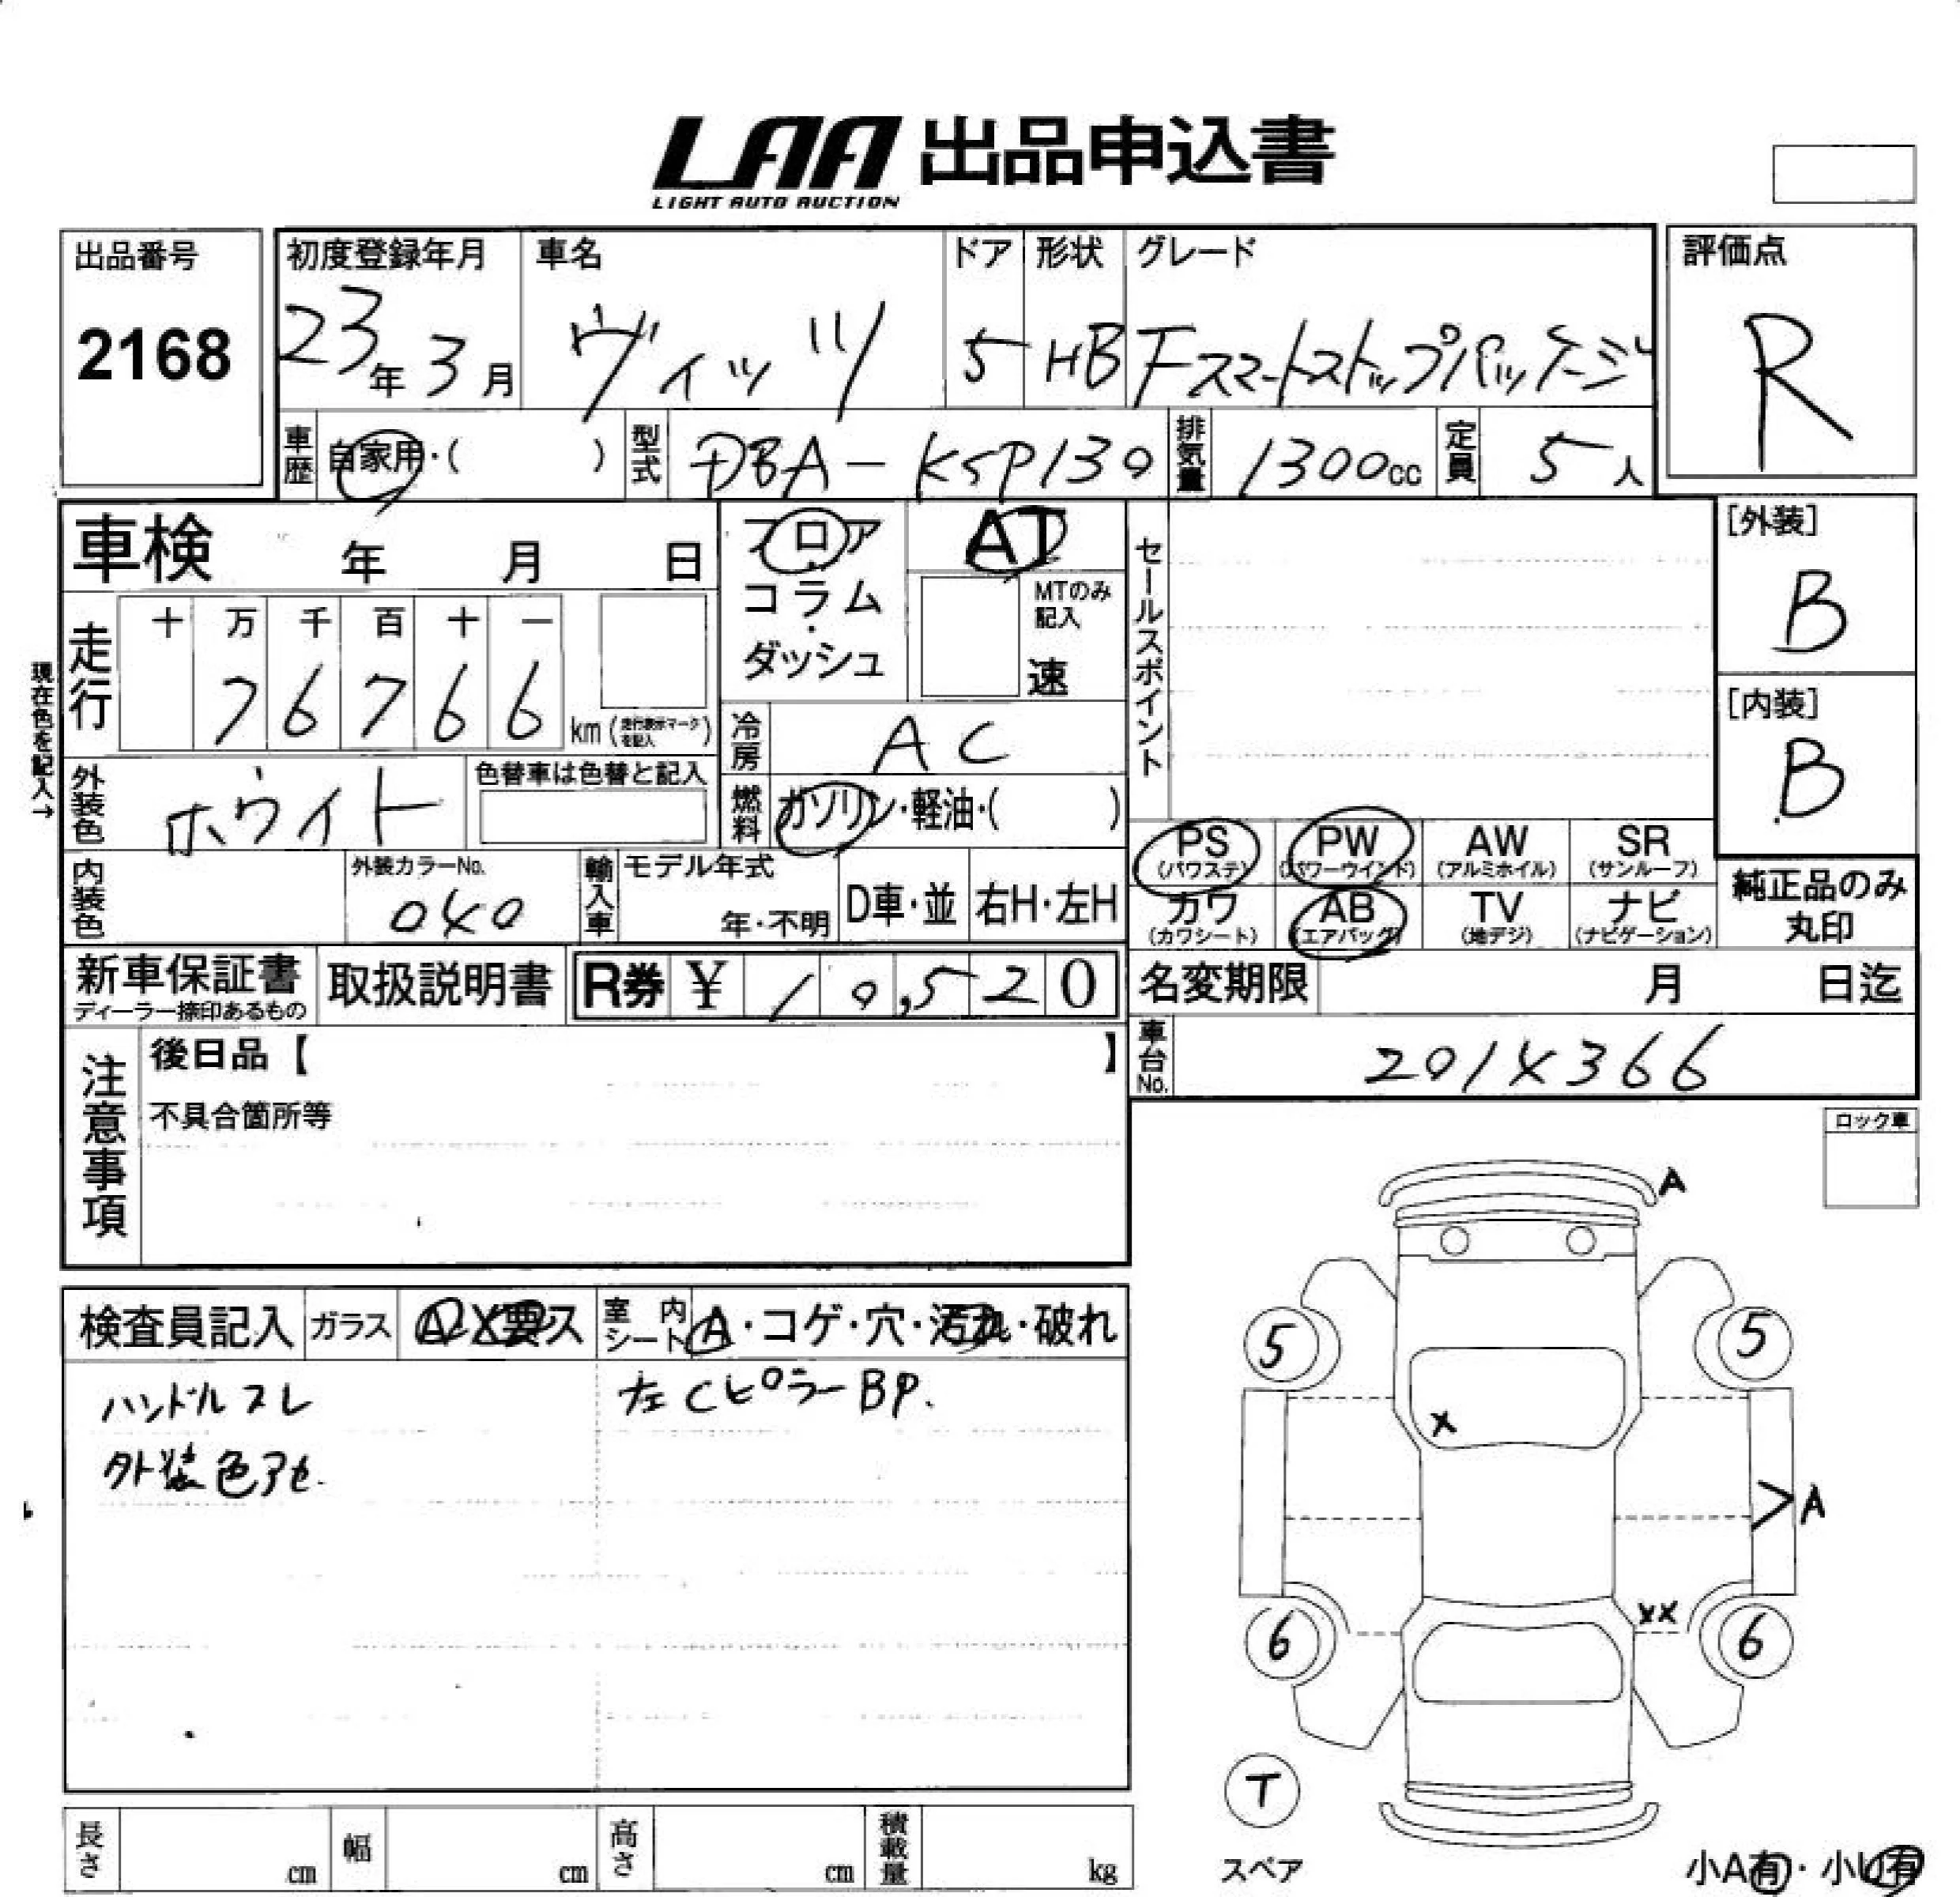 LAA 出品申込書
LIGHT AUTO AUCTION
出品番号
2168
初度登録年月
23年3月
車名
ヴィッツ
ドア
5
形状
HB
グレード
Fスマートストップパッケージ
評価点
R
車歴
自家用・( )
型式
DBA-KSP130
排気量
1300cc
定員
5人
車検 年 月 日
フロア
・
コラム
・
ダッシュ
AT
MTのみ
記入
速
セールスポイント
[外装]
B
[内装]
B
現在色を記入→
走行
十 万 千 百 十 一
7 6 7 6 6
km (走行表示マークを記入)
冷房
AC
外装色
ホワイト
色替車は色替と記入
燃料
ガソリン・軽油・( )
PS
(パワステ)
PW
(パワーウインド)
AW
(アルミホイル)
SR
(サンルーフ)
カワ
(カワシート)
AB
(エアバッグ)
TV
(地デジ)
ナビ
(ナビゲーション)
純正品のみ
丸印
内装色
外装カラーNo.
040
輸入車
モデル年式
年・不明
D車・並
右H・左H
新車保証書
ディーラー捺印あるもの
取扱説明書
R券 ¥ 10,520
名変期限 月 日迄
車台No.
2014366
注意事項
後日品【 】
不具合箇所等
ロック車
検査員記入
ガラス
A X 要ス
室内シート
A・コゲ・穴・汚れ・破れ
ハンドルスレ
外装色アセ.
左CピラーBP.
A
5
5
X
A
XX
6
6
T
スペア
長さ cm
幅 cm
高さ cm
積載量 kg
小A有・小U有